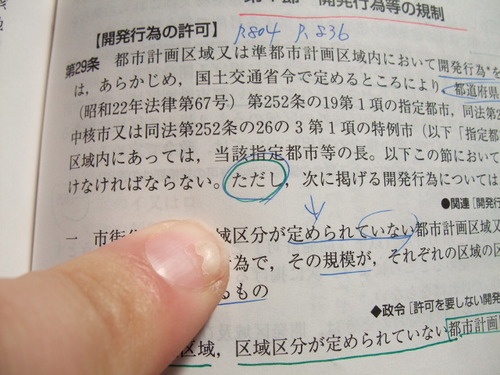 節　開発行為等の規制
【開発行為の許可】 P.804 P.836
第29条　都市計画区域又は準都市計画区域内において開発行為を
は，あらかじめ，国土交通省令で定めるところにより，都道府県
（昭和22年法律第67号）第252条の19第1項の指定都市，同法第2
中核市又は同法第252条の26の3第1項の特例市（以下「指定都
区域内にあっては，当該指定都市等の長。以下この節におい
けなければならない。ただし，次に掲げる開発行為については
●関連［開発行
一　市街 域区分が定められていない都市計画区域又
為で，その規模が，それぞれの区域の区
るもの
◆政令［許可を要しない開発
区域，区域区分が定められていない都市計画